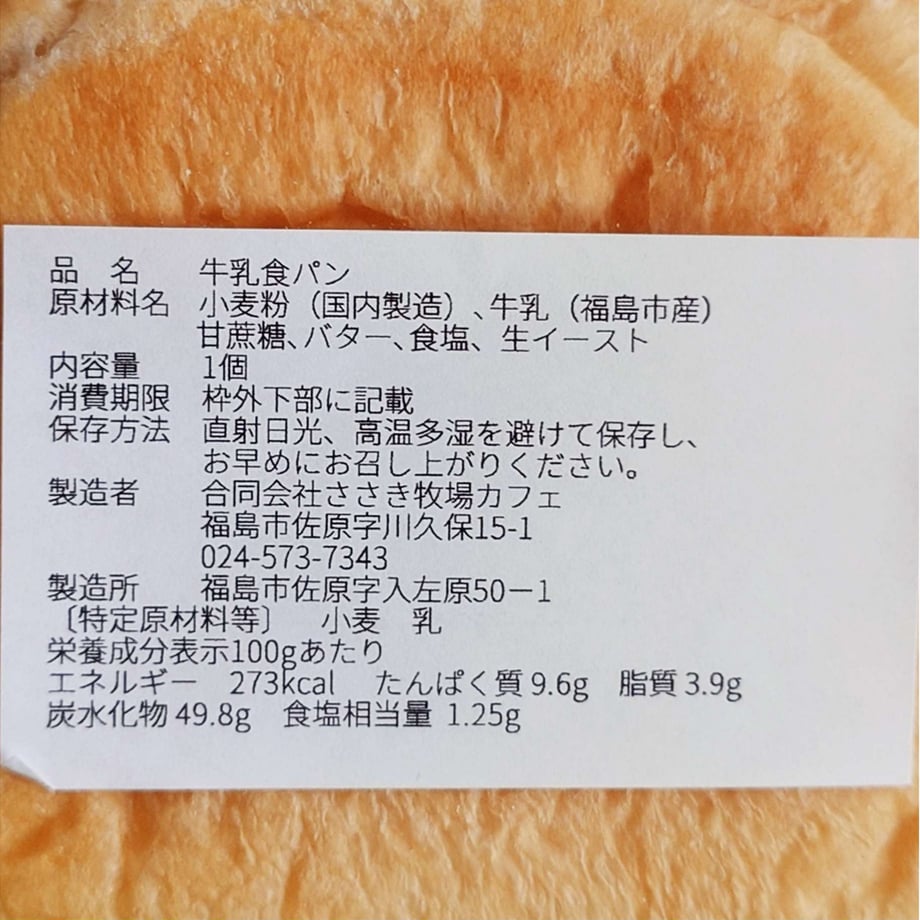 品 名 牛乳食パン
原材料名 小麦粉（国内製造）、牛乳（福島市産）
甘蔗糖、バター、食塩、生イースト
内容量 1個
消費期限 枠外下部に記載
保存方法 直射日光、高温多湿を避けて保存し、
お早めにお召し上がりください。
製造者 合同会社ささき牧場カフェ
福島市佐原字川久保15-1
024-573-7343
製造所 福島市佐原字入左原50－1
〔特定原材料等〕 小麦 乳
栄養成分表示100gあたり
エネルギー 273kcal たんぱく質 9.6g 脂質 3.9g
炭水化物 49.8g 食塩相当量 1.25g